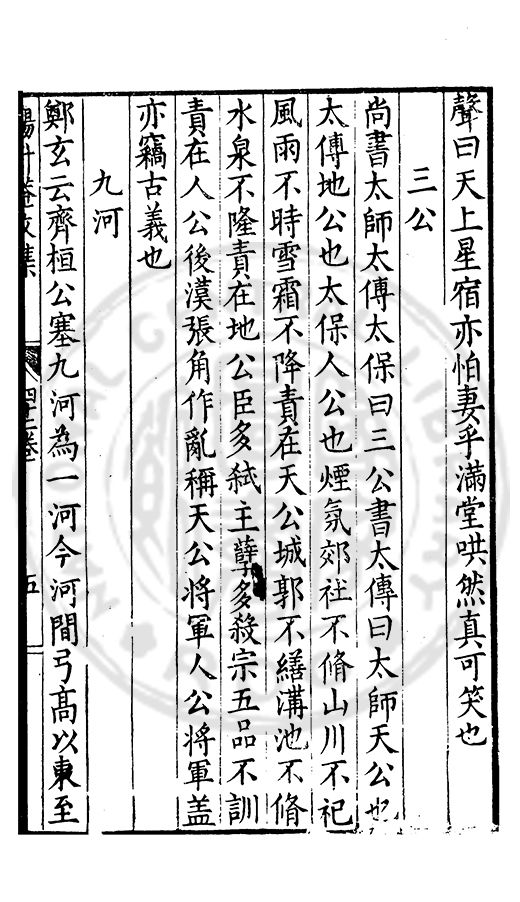 聲曰天上星宿亦怕妻乎滿堂哄然真可笑也
三公
尚書太師太傅太保曰三公書太傳曰太師天公也
太傅地公也太保人公也煙氛郊社不脩山川不祀
風雨不時雪霜不降責在天公城郭不繕溝池不脩
水泉不隆責在地公臣多弑主孽多殺宗五品不訓
責在人公後漢張角作亂稱天公將軍人公將軍盖
亦竊古義也
九河
鄭玄云齊桓公塞九河為一河今河間弓髙以東至